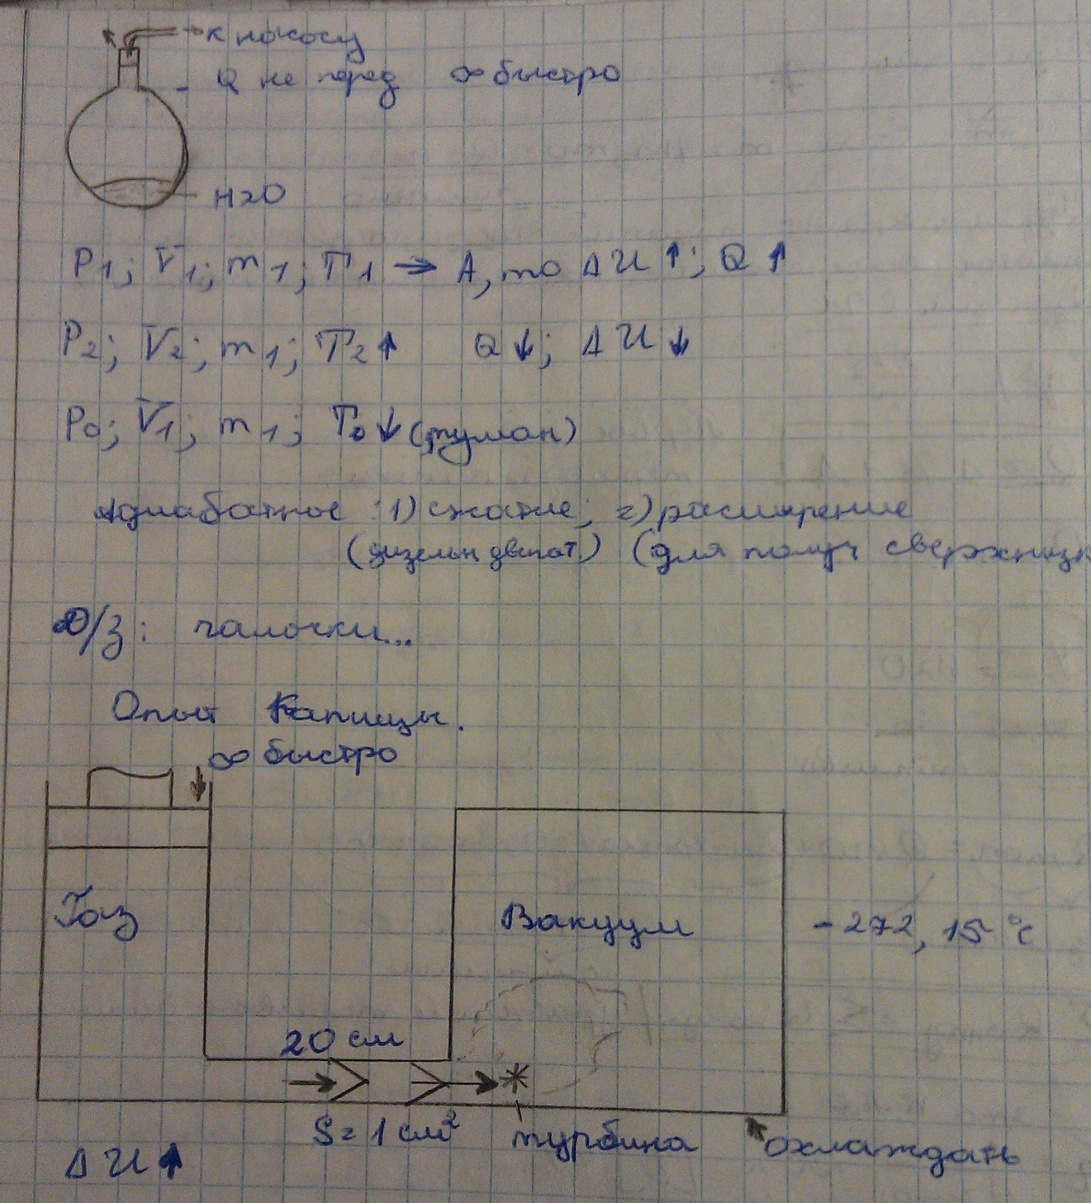 к насосу
Q не перед ∞ быстро
H2O
P1; V1; m1; T1 → A, то ΔU↑; Q↑
P2; V2; m1; T2↑ Q↓; ΔU↓
P0; V1; m1; T0↓ (туман)
Адиабатное: 1) сжатие; 2) расширение
(дизельн двигат.) (для получ сверхнизк
Д/З: галочки...
Опыт Капицы.
∞ быстро
Газ
Вакуум
-272,15 °C
20 см
S = 1 см²
турбина
охлаждать
ΔU↑